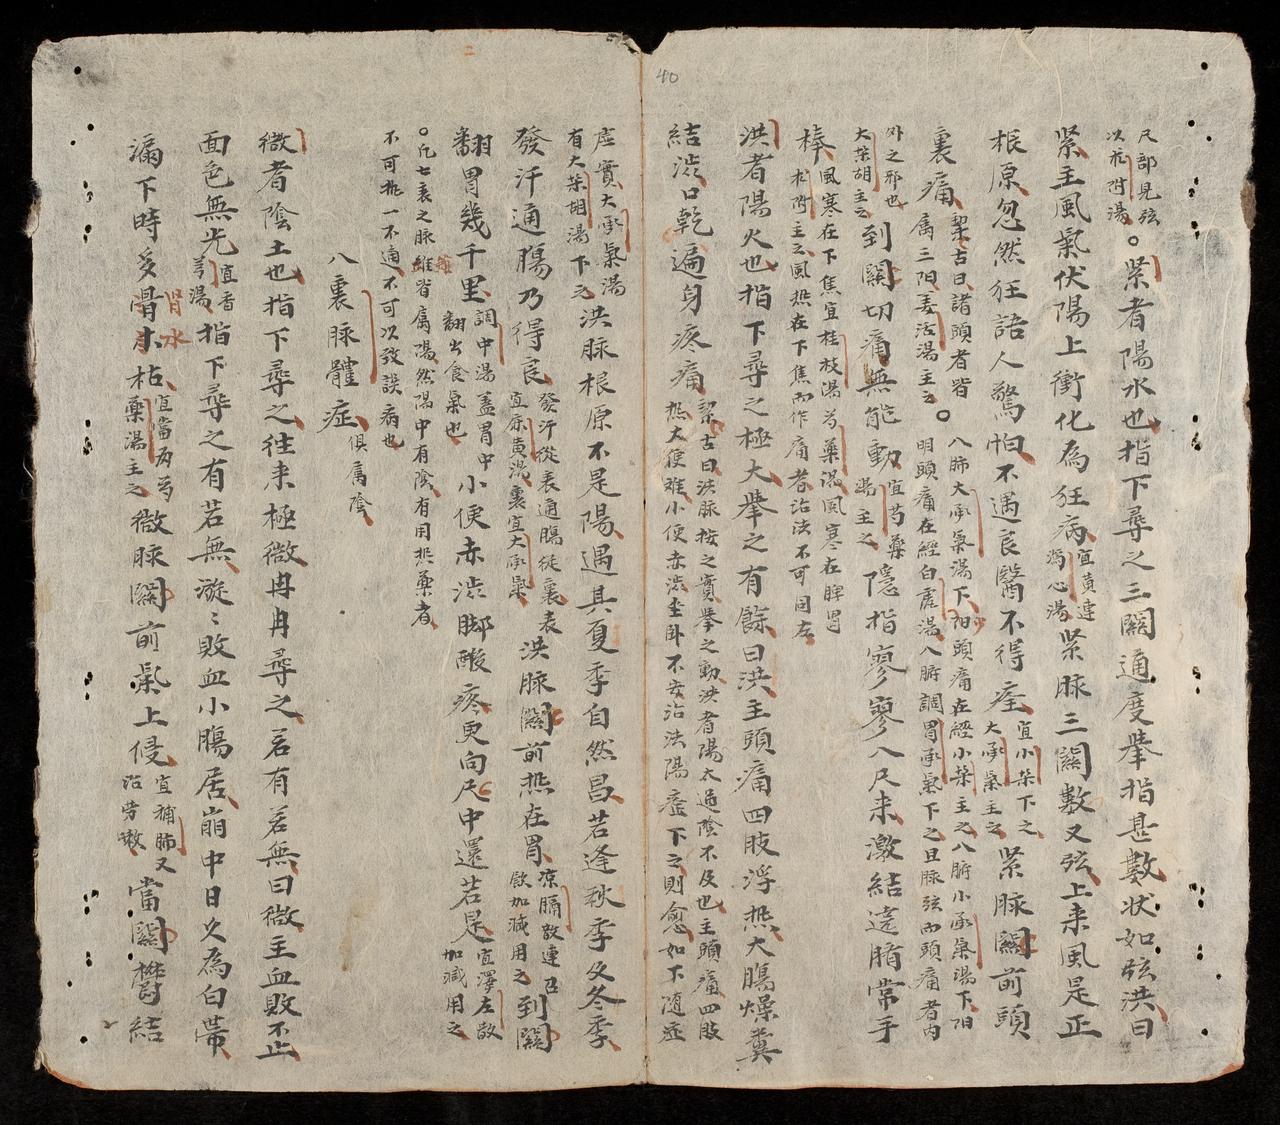 40
尺部見弦
以𦬊附湯
○緊者陽水也指下尋之三關通度舉指甚數狀如弦洪曰
緊主風氣伏陽上衝化為狂病宜黃連
瀉心湯緊脉三關數又弦上来風是正
根原忽然狂語人驚怕不遇良醫不得痊宜小柴下之
大承氣主之緊脉關前頭
裏痛
絜古曰諸頭者皆
屬三阳羌活湯主之○八肺大承氣湯下阳頭痛在經小柴主之八腑小承氣湯下阳
明頭痛在經白虎湯八腑調胃承氣下之且脉弦而頭痛者內
外之邪也
大柴胡主之到關切痛無能動宜芍藥
湯主之隱指寥寥入尺来激結遶臍常手
棒風寒在下焦宜桂枝湯芍藥湯風寒在脾胃
术附主之風热在下焦而作痛者治法不可同在
洪者陽火也指下尋之極大舉之有餘曰洪主頭痛四肢浮热大腸燥糞
結澁口乾遍身疼痛絜古曰洪脉按之實舉之動洪者陽太過陰不及也主頭痛四肢
热大便难小便赤澁坐卧不安治法陽症下之則愈如下随症
虛實大承氣湯
有大柴胡湯下之洪脉根原不是陽遇其夏季自然昌若逢秋季及冬季
發汗通腸乃得良發汗從表通腸從裏表
宜麻黃湯裏宜大承氣洪脉關前热在胃凉膈散連召
飲加減用之到關
翻胃幾千里調中湯盖胃中
翻出食氣也小便赤澁脚酸疼更向尺中還若是宜澤左散
加減用之
○凡七表之脉雖皆属陽然陽中有陰有用热藥者
不可执一不通不可以致誤病也
八裏脉體症俱属陰
微者陰土也指下尋之往来極微冉冉尋之若有若無曰微主血敗不止
面色無光宜香
芎湯指下尋之有若無漩〻敗血小腸居崩中日久為白帶
漏下時多骨木枯宜當歸芍
藥湯主之微脉關前氣上侵宜補肺又
治劳嗽當關鬱結
腎水